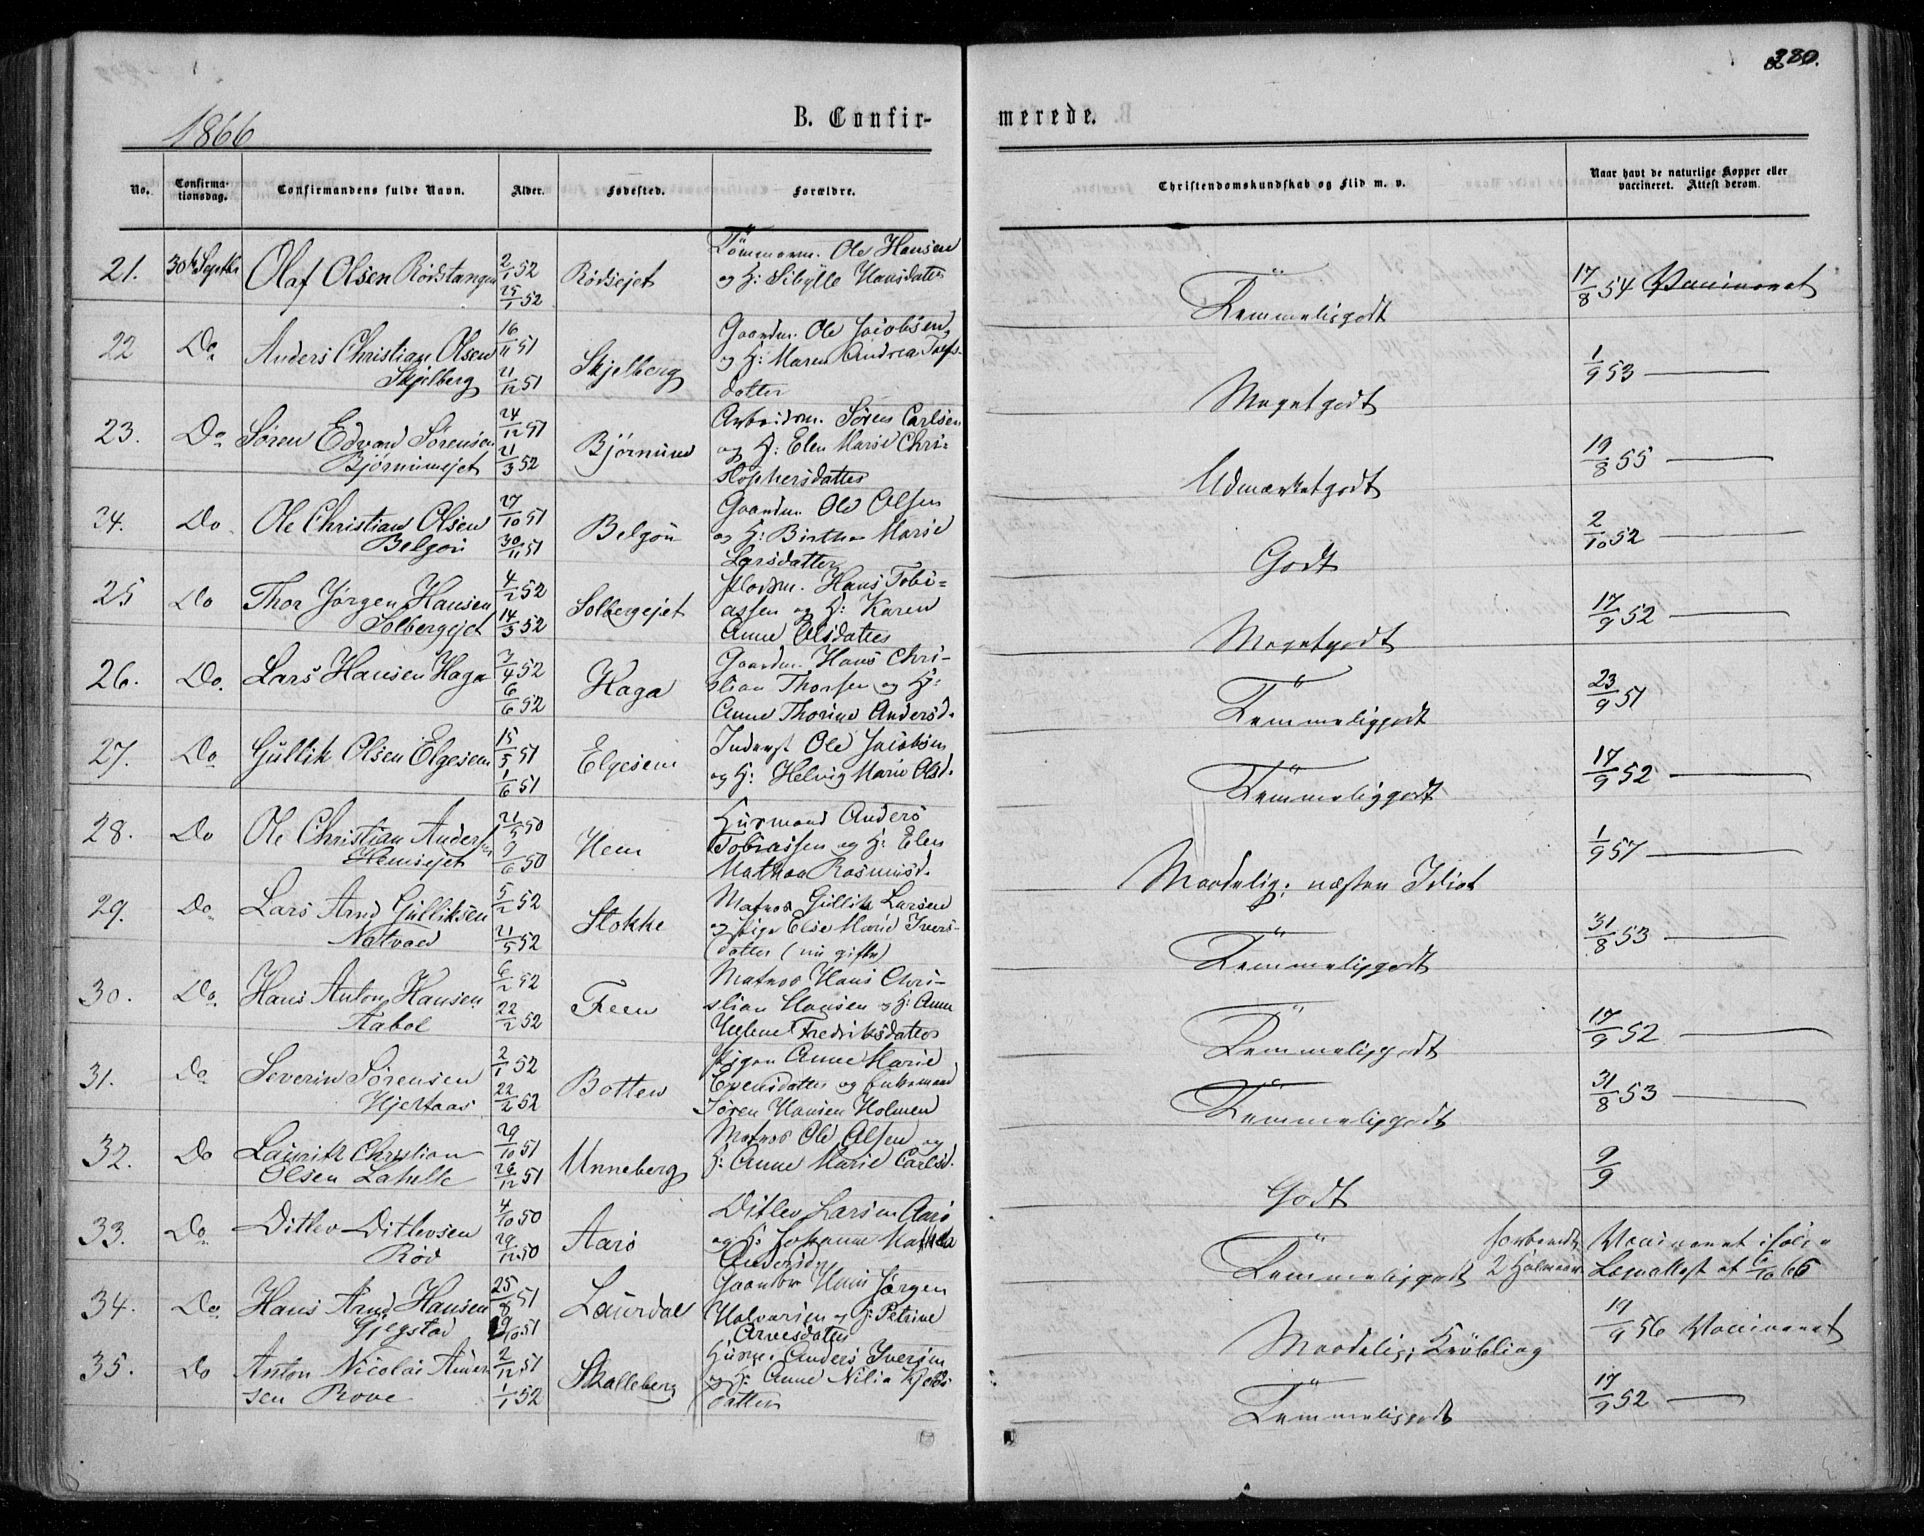 380.
1866
B. Confir-
merede.
No.
Confirma-
tionsdag.
Confirmandens fulde Navn.
Alder.
Fødested.
Forældre.
Christendomskundskab og Flid m. v.
Naar havt de naturlige Kopper eller
vaccineret. Attest derom.
21. 30te Septbr Olaf Olsen Rødstangen 2/1 52 25/1 52 Rødsejet
Tømmerm. Ole Hansen
og H: Sibylle Hansdatter
Temmeligodt 17/8 54 Vaccineret
22 Do Anders Christian Olsen 16/11 51
Skjelberg 21/12 51 Skjelberg
Gaardm. Ole Jacobsen
og H: Maren Andrea Tolfs-
datter
Megetgodt 1/9 53
23. Do Søren Edvard Sørensen 24/12 51
Bjørnumejet 21/3 52 Bjørnum
Arbeidsm. Søren Carlsen
og H: Elen Marie Chri-
stophersdatter
Udmærketgodt 19/8 55
24. Do Ole Christian Olsen 27/10 51
Belgøn 30/11 51 Belgøn
Gaardm. Ole Olsen
og H: Birthe Marie
Larsdatter
Godt 2/10 52
25 Do Thor Jørgen Hansen 4/2 52
Solbergejet 14/3 52 Solbergejet
Hans Tobi-
assen og H: Karen
Anne Olsdatter
Megetgodt 17/9 52
26. Do. Lars Hansen Haga 3/4 52 6/6 52 Haga
Gaardm. Hans Chri-
stian Thorsen og H:
Anne Thorine Andersd.
Temmeliggodt 23/9 51
27. Do Gullik Olsen Elgesem 15/5 51 1/6 51 Elgesem
Inderst Ole Jacobsen
og H: Helvig Marie Olsd.
Temmeliggodt 17/9 52
28. Do Ole Christian Andersen 21/5 50
Hemsejet 9/6 50 Hem
Husmand Anders
Tobiassen og H: Elen
Mathea Rasmusd.
Maadelig; næsten Idiot 1/9 57
29. Do Lars Arnd Gulliksen 5/2 52
Natvaed 21/5 52 Stokke
Matros Gullik Larsen
og Pige Else Marie Ivers-
datter (nu gifte)
Temmeligodt 31/8 53
30. Do. Hans Anton Hansen 6/2 52
Aabol 22/2 52 Feen
Matros Hans Chri-
stian Hansen og H: Anne
Helene Fredriksdatter
Temmeligodt 17/9 52
31. Do Severin Sørensen 2/1 52
Hjertaas 22/2 52 Botten
Pigen Anne Marie
Evensdatter og Enkemand
Søren Hansen Holmen
Temmeligodt 31/8 53
32. Do Lauritz Christian 29/10 51
Olsen Lahelle 26/12 51 Unneberg
Matros Ole Olsen og
H: Anne Marie Carlsd.
Godt 9/9
33. Do Ditlev Ditlevsen 4/10 50
Rød 29/12 50 Aarø
Ditlev Larsen Aarø
og H: Johanne Mathea
Andersdr
Temmeligodt 2
Vaccineret ifølge
Lægeattest af 6/10 66
34. Do. Hans Arnd Hansen 25/8 51
Gjegstad 19/10 51 Lauerdal
Hans Jørgen
Halvorsen og H: Petrine
Arvesdatter
Maadelig; Krøbling 19/9 56 Vaccineret
35. Do Anton Nicolai Ander- 2/12 51
sen Rove 1/1 52 Skalleberg
Husm. Anders Iversen
og H: Anne Nilia
datter
Temmeligodt 17/9 52